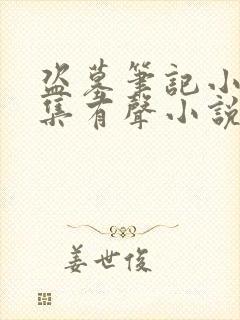 盜墓筆記小
集有聲小說
姜世俊